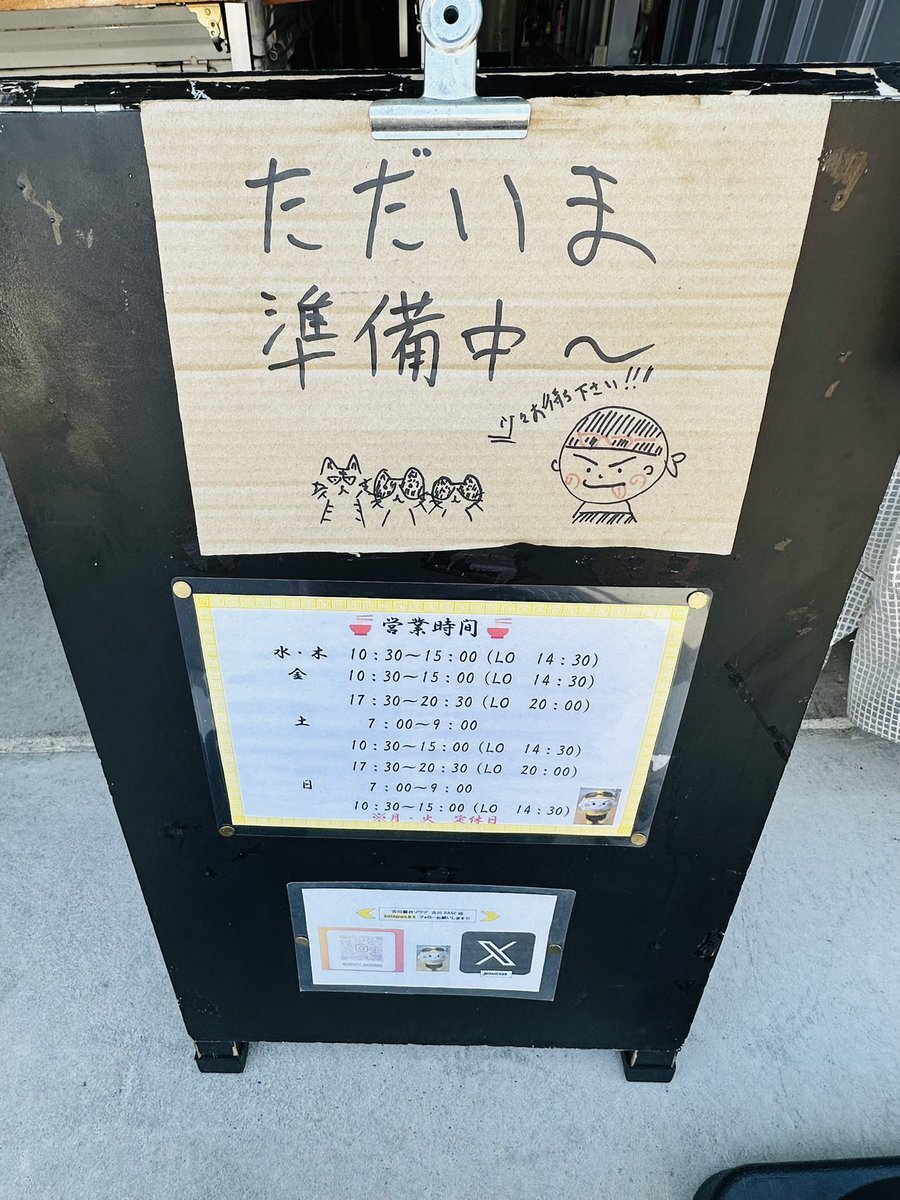 ただいま
準備中～
少々お待ち下さい!!!
営業時間
水・木 10：30～15：00（LO 14：30）
金 10：30～15：00（LO 14：30）
17：30～20：30（LO 20：00）
土 7：00～9：00
10：30～15：00（LO 14：30）
17：30～20：30（LO 20：00）
日 7：00～9：00
10：30～15：00（LO 14：30）
※月・火 定休日
Instagram&X フォローお願いします!!